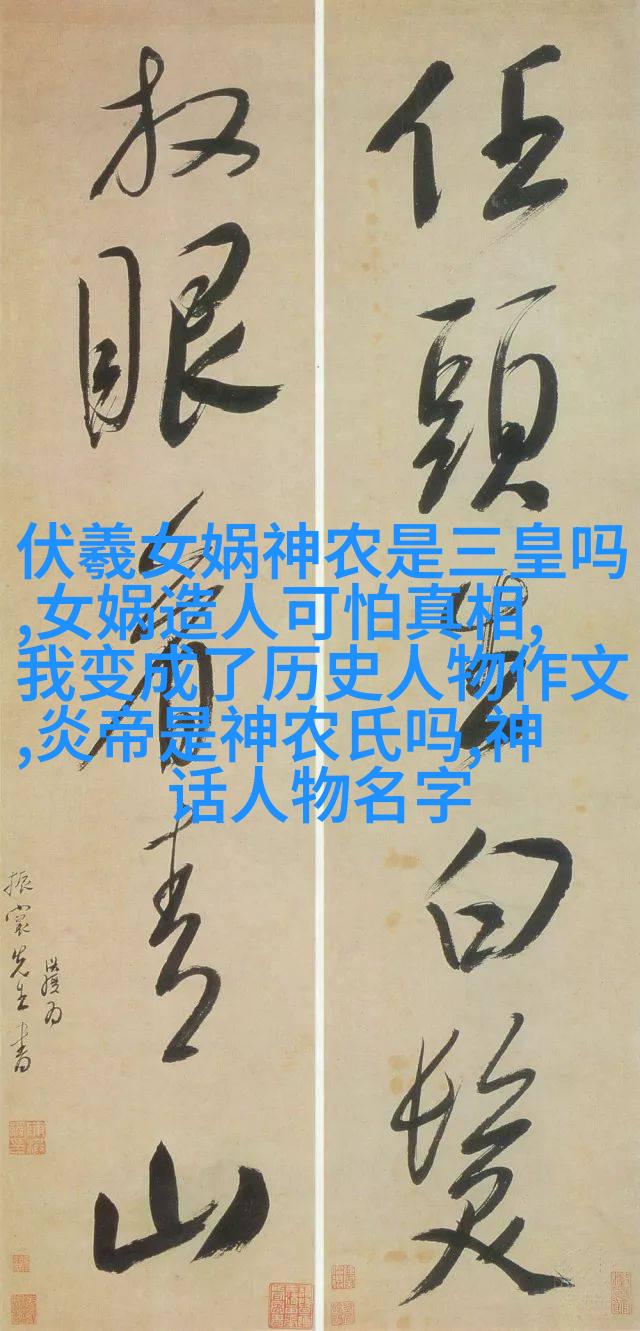 任頭生白髮
放眼看青山
伏羲女娲神农是三皇吗
,女娲造人可怕真相,
我变成了历史人物作文
,炎帝是神农氏吗,神
话人物名字
振裳先生書